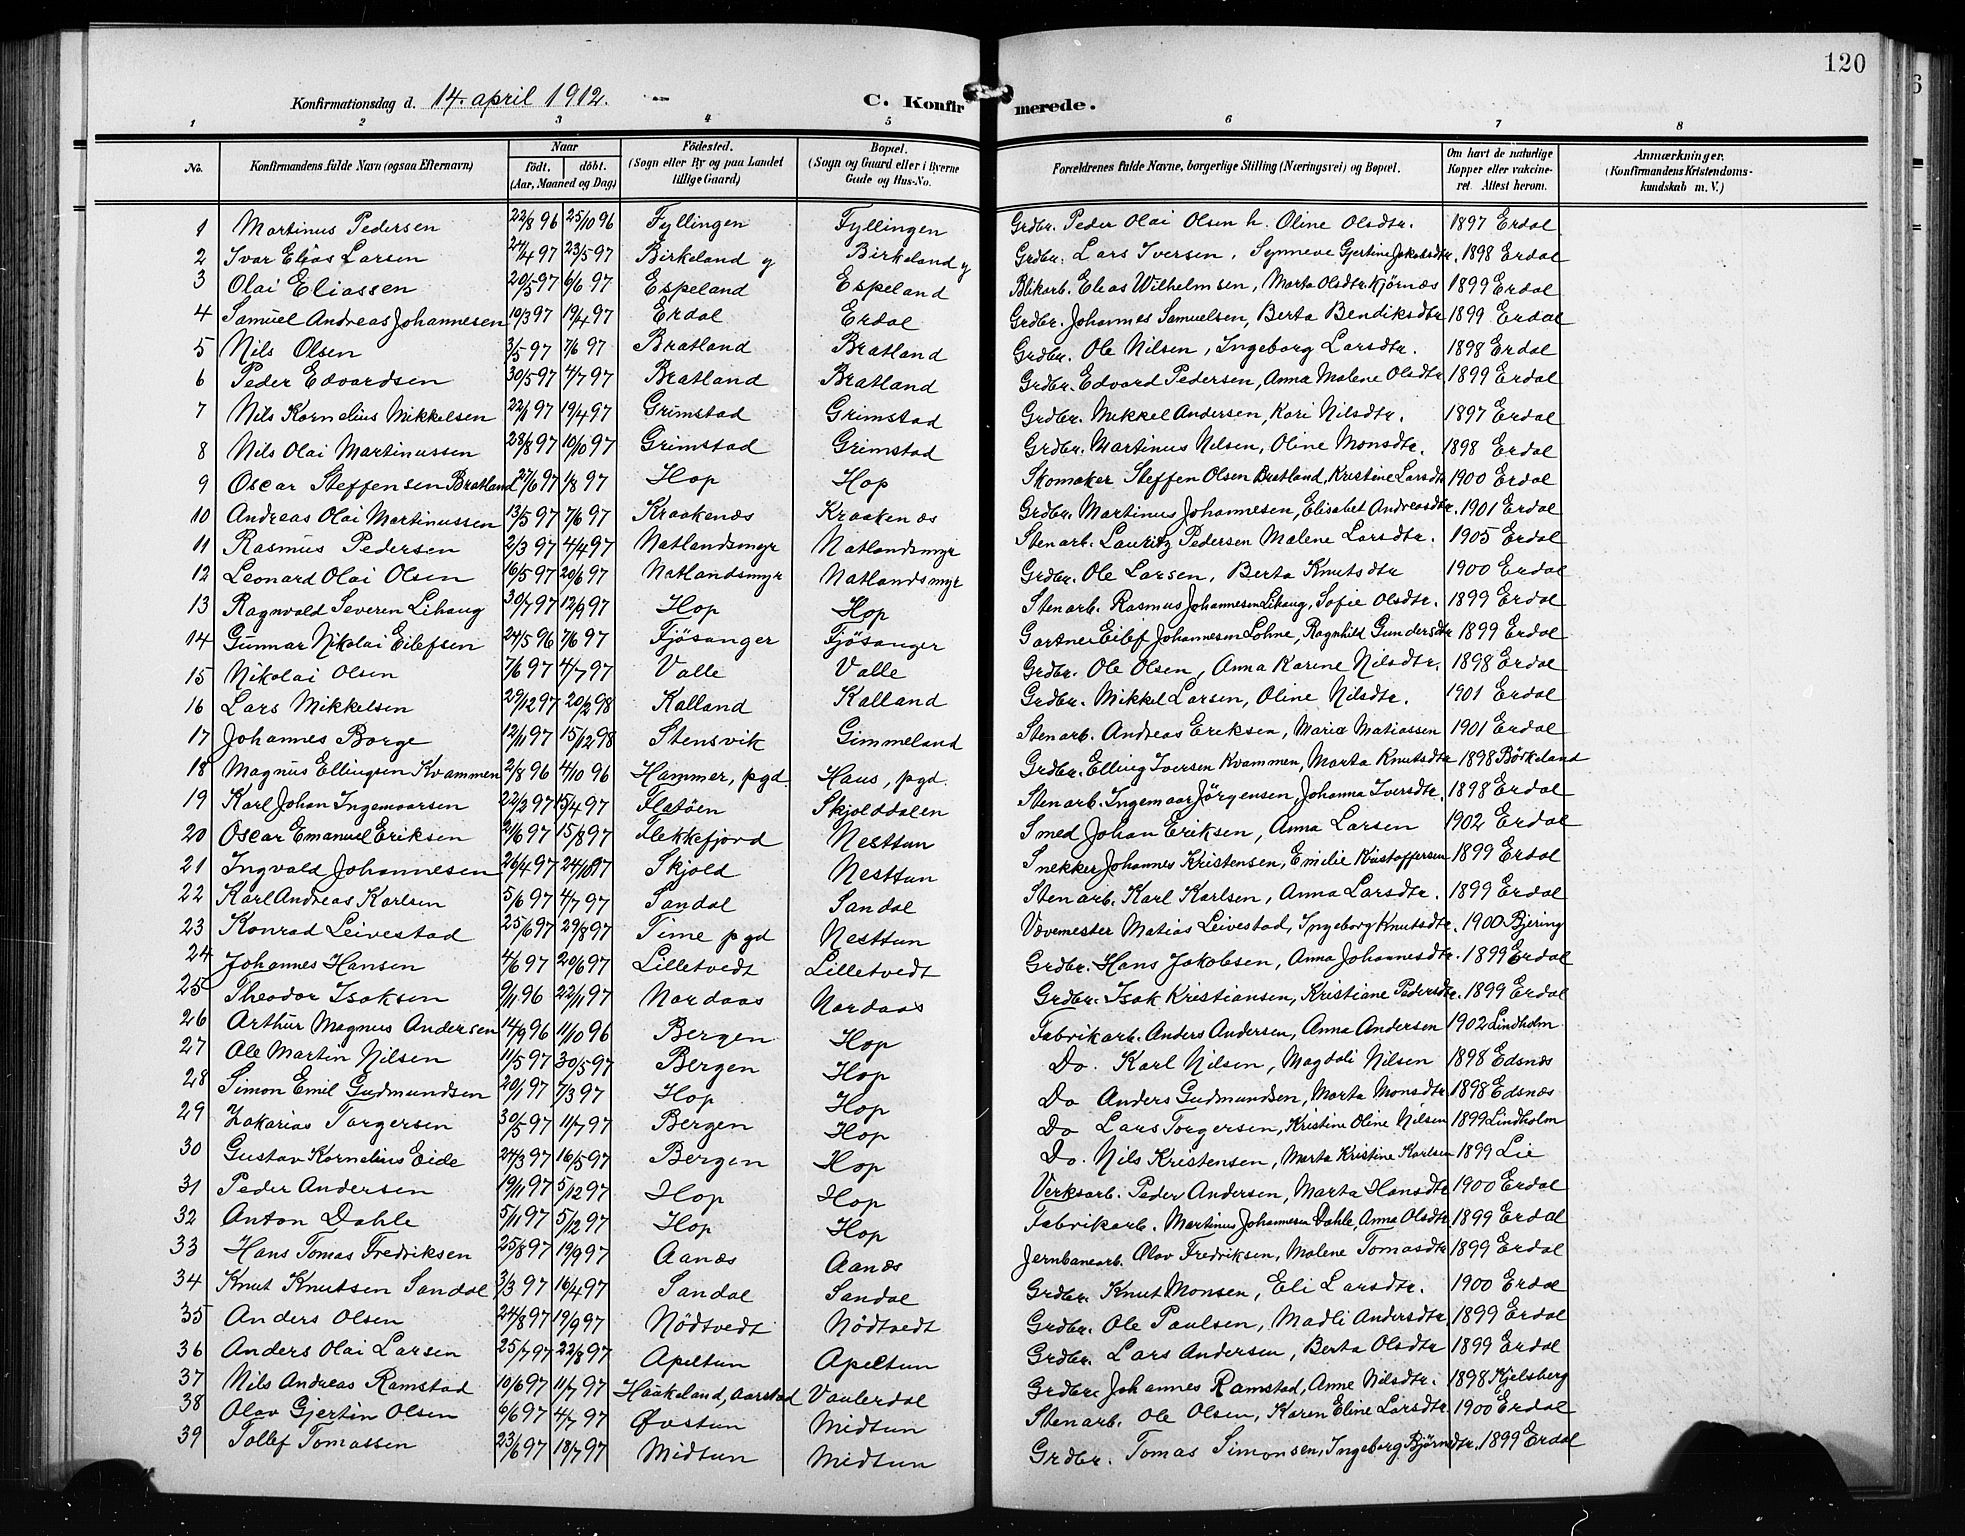 120
Konfirmationsdag d. 14. april 1912. C. Konfirmerede.
1 2 3 4 5 6 7 8
No. Konfirmandens fulde Navn (ogsaa Efternavn) Naar født. døbt. (Aar, Maaned og Dag) Fødested. (Sogn eller By og paa Landet tillige Gaard) Bopæl. (Sogn og Gaard eller i Byerne Gade og Hus-No. Forældrenes fulde Navne, borgerlige Stilling (Næringsvei) og Bopæl. Om havt de naturlige Kopper eller vakcineret. Attest herom. Anmærkninger. (Konfirmandens Kristendomskundskab m. V.)
1 Martinus Pedersen 22/8 96 25/10 96 Fyllingen Fyllingen Grdbr. Peder Olai Olsen h. Oline Olsdtr. 1897 Erdal
2 Ivar Elias Larsen 27/4 97 23/5 97 Birkeland y Birkeland y Grdbr. Lars Iversen, Synneve Gjertine Jakobsdtr. 1898 Erdal
3 Olai Eliassen 20/5 97 6/6 97 Espeland Espeland Blikarb. Elias Wilhelmsen, Marta Olsdtr. Kjørnes 1899 Erdal
4 Samuel Andreas Johannesen 10/3 97 19/4 97 Erdal Erdal Grdbr. Johannes Samuelsen, Berta Bendiksdtr 1899 Erdal
5 Nils Olsen 3/5 97 7/6 97 Bratland Bratland Grdbr. Ole Nilsen, Ingeborg Larsdtr. 1898 Erdal
6 Peder Edvardsen 30/5 97 4/7 97 Bratland Bratland Grdbr. Edvard Pedersen, Anna Malene Olsdtr 1899 Erdal
7 Nils Kornelius Mikkelsen 22/1 97 19/4 97 Grimstad Grimstad Grdbr. Mikkel Andersen, Kari Nilsdtr. 1897 Erdal
8 Nils Olai Martinussen 28/8 97 10/10 97 Grimstad Grimstad Grdbr. Martinus Nilsen, Oline Monsdtr. 1898 Erdal
9 Oscar Steffensen Bratland 27/6 97 1/8 97 Hop Hop Skomaker Steffen Olsen Bratland, Kristine Larsdtr 1900 Erdal
10 Andreas Olai Martinussen 13/5 97 7/6 97 Kraakenæs Kraakenæs Grdbr. Martinus Johannesen, Elisabet Andreasdtr. 1901 Erdal
11 Rasmus Pedersen 2/3 97 4/4 97 Natlandsmyr Natlandsmyr Stenarb. Lauritz Pedersen Malene Larsdtr. 1905 Erdal
12 Leonard Olai Olsen 16/5 97 20/6 97 Natlandsmyr Natlandsmyr Grdbr. Ole Larsen, Berta Knutsdtr 1900 Erdal
13 Ragnvald Severin Lihaug 30/7 97 12/9 97 Hop Hop Stenarb. Rasmus Johannesen Lihaug, Sofie Olsdtr. 1899 Erdal
14 Gunnar Nikolai Eilefsen 24/5 96 7/6 97 Fjösanger Fjösanger Gartner Eilef Johannesen Lohne, Ragnhild Gundersdtr 1899 Erdal
15 Nikolai Olsen 7/6 97 4/7 97 Valle Valle Grdbr. Ole Olsen, Anna Karine Nilsdtr. 1898 Erdal
16 Lars Mikkelsen 29/12 97 20/2 98 Kalland Kalland Grdbr. Mikkel Larsen, Oline Nilsdtr. 1901 Erdal
17 Johannes Borge 12/11 97 15/12 98 Stensvik Gimmeland Stenarb. Andreas Eriksen, Maria Matiassen 1901 Erdal
18 Magnus Ellingsen Kvammen 2/8 96 4/10 96 Hammer, pgd. Haus, pgd. Grdbr. Elling Iversen Kvammen, Marta Knutsdtr 1898 Börkeland
19 Karl Johan Ingemaarsen 22/2 97 15/4 97 Fletöen Skjolddalen Stenarb. Ingemaar Jörgensen, Johanna Iversdtr. 1898 Erdal
20 Oscar Emanuel Eriksen 21/6 97 15/8 97 Flekkefjord Nesttun Smed Johan Eriksen, Anna Larsen 1902 Erdal
21 Ingvald Johannesen 26/4 97 24/10 97 Skjold Nesttun Snekker Johannes Kristensen, Emilie Kristoffersen 1899 Erdal
22 Karl Andreas Karlsen 5/6 97 4/7 97 Sandal Sandal Stenarb. Karl Karlsen, Anna Larsdtr. 1899 Erdal
23 Konrad Leivestad 25/6 97 29/8 97 Time pgd Nesttun Vævemester Matias Leivestad, Ingeborg Knutsdtr. 1900 Bjering
24 Johannes Hansen 4/6 97 20/6 97 Lilletvedt Lilletvedt Grdbr. Hans Jakobsen, Anna Johannesdtr. 1899 Erdal
25 Theodor Isaksen 9/11 96 22/11 97 Nordaas Nordaas Grdbr. Isak Kristiansen, Kristiane Pedersdtr. 1899 Erdal
26 Arthur Magnus Andersen 14/9 96 11/10 96 Bergen Hop Fabrikarb. Anders Andersen, Anna Andersen 1902 Lindholm
27 Ole Martin Nilsen 11/5 97 30/5 97 Bergen Hop Do. Karl Nilsen, Magdali Nilsen 1898 Edsnæs
28 Simon Emil Gudmundsen 20/1 97 7/3 97 Hop Hop Do Anders Gudmundsen, Marta Monsdtr 1898 Edsnæs
29 Zakarias Torgersen 30/5 97 11/7 97 Bergen Hop Do Lars Torgersen, Kristine Oline Nilsen 1899 Lindholm
30 Gustav Kornelius Eide 24/3 97 16/5 97 Bergen Hop Do. Nils Kristensen, Marta Kristine Karlsen 1899 Lie
31 Peder Andersen 19/11 97 5/12 97 Hop Hop Verksarb. Peder Andersen, Marta Hansdtr 1900 Erdal
32 Anton Dahle 5/11 97 5/12 97 Hop Hop Fabrikarb. Martinus Johannesen Dahle, Anna Olsdtr 1899 Erdal
33 Hans Tomas Fredriksen 25/8 97 19/9 97 Aanæs Aanæs Jernbanearb. Olav Fredriksen, Malene Tomasdtr 1899 Erdal
34 Knut Knutsen Sandal 3/3 97 16/4 97 Sandal Sandal Grdbr. Knut Monsen, Eli Larsdtr. 1900 Erdal
35 Anders Olsen 24/8 97 19/9 97 Nödtvedt Nödtvedt Grdbr. Ole Paulsen, Madli Andersdtr. 1899 Erdal
36 Anders Olai Larsen 25/7 97 22/8 97 Apeltun Apeltun Grdbr. Lars Andersen, Berta Olsdtr 1899 Erdal
37 Nils Andreas Ramstad 10/6 97 11/7 97 Haakeland, Aarstad Vaulerdal Grdbr. Johannes Ramstad, Anne Nilsdtr. 1898 Kjelsberg
38 Olav Gjertin Olsen 6/6 97 4/7 97 Øvstun Midtun Stenarb. Ole Olsen, Karen Eline Larsdtr. 1900 Erdal
39 Tollef Tomassen 23/6 97 18/7 97 Midtun Midtun Grdbr. Tomas Simonsen, Ingeborg Bjørnsdtr. 1899 Erdal